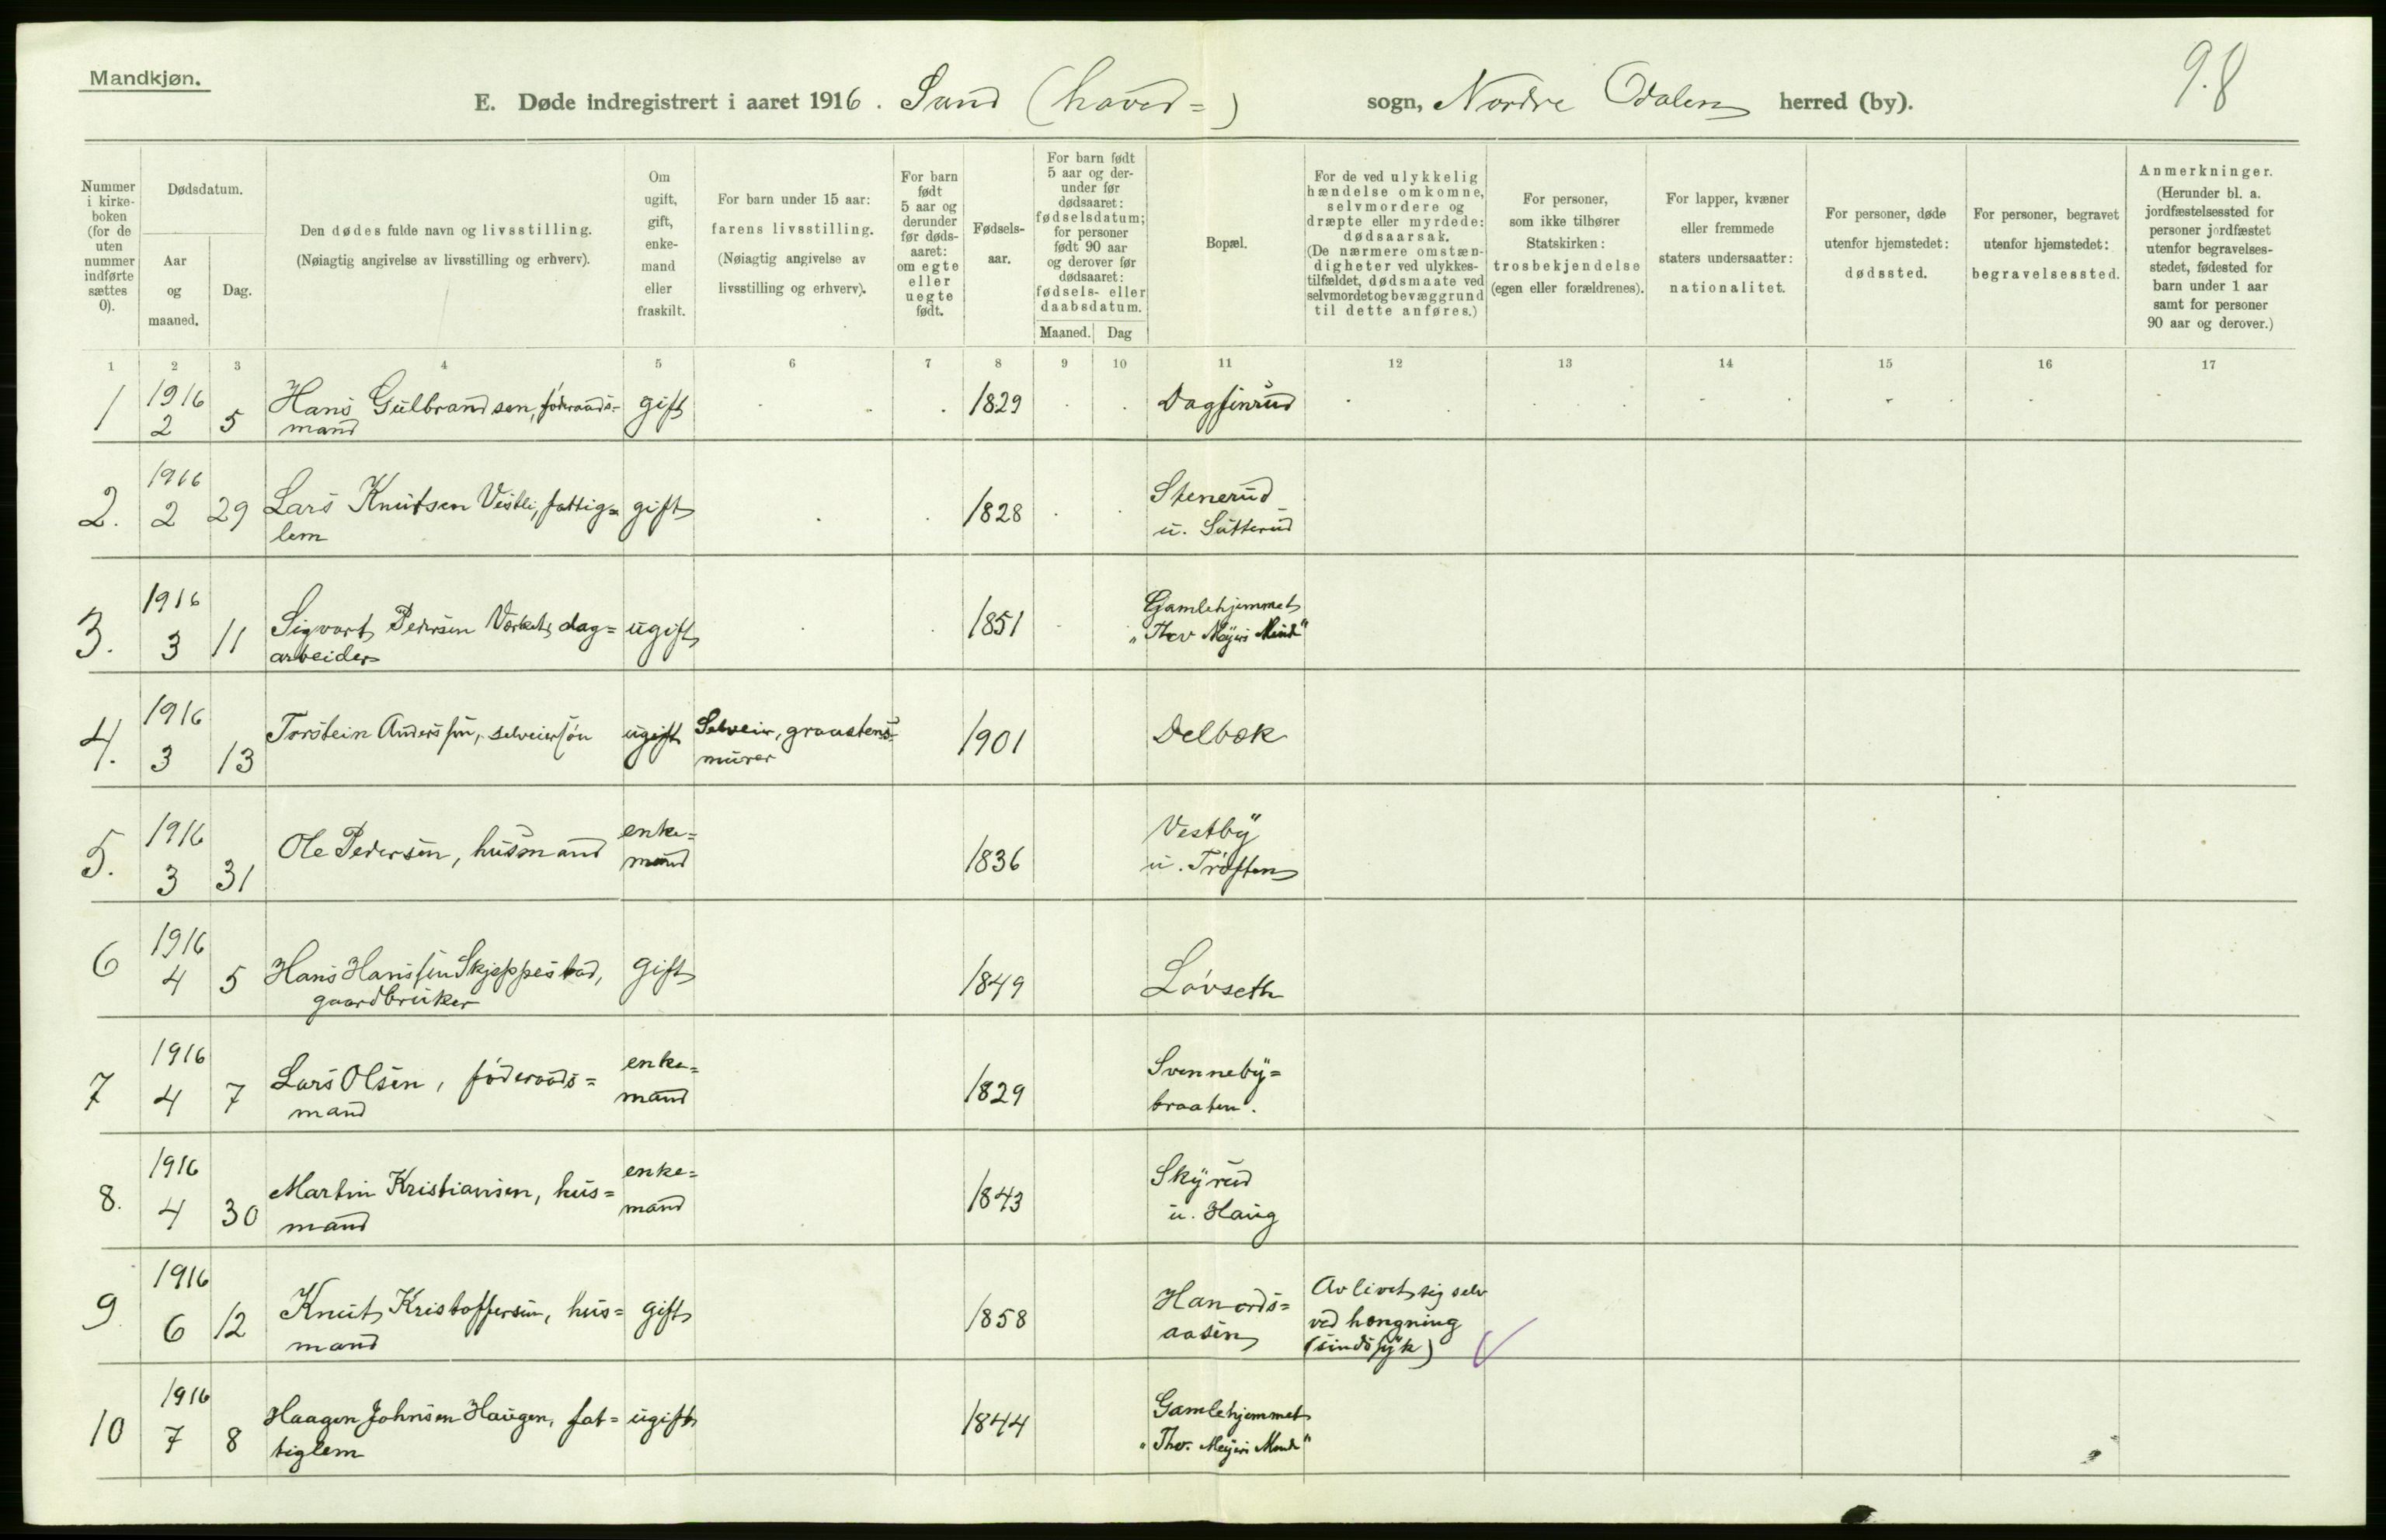 Mandkjøn.
98
E. Døde indregistrert i aaret 1916. Sand (hoved=) sogn, Nordre Odalen herred (by).
Nummer i kirkeboken (for de uten nummer indførte sættes 0).
Dødsdatum.
Aar og maaned.
Dag.
Den dødes fulde navn og livsstilling.
(Nøiagtig angivelse av livsstilling og erhverv).
Om ugift, gift, enkemand eller fraskilt.
For barn under 15 aar: farens livsstilling.
(Nøiagtig angivelse av livsstilling og erhverv).
For barn født 5 aar og derunder før dødsaaret: om egte eller uegte født.
Fødselsaar.
For barn født 5 aar og derunder før dødsaaret: fødselsdatum; for personer født 90 aar og derover før dødsaaret: fødsels- eller daabsdatum.
Maaned. Dag
Bopæl.
For de ved ulykkelig hændelse omkomne, selvmordere og dræpte eller myrdede: dødsaarsak.
(De nærmere omstændigheter ved ulykkestilfældet, dødsmaate ved selvmordet og bevæggrund til dette anføres.)
For personer, som ikke tilhører Statskirken: trosbekjendelse (egen eller forældrenes).
For lapper, kvæner eller fremmede staters undersaatter: nationalitet.
For personer, døde utenfor hjemstedet: dødssted.
For personer, begravet utenfor hjemstedet: begravelsessted.
Anmerkninger.
(Herunder bl. a. jordfæstelsessted for personer jordfæstet utenfor begravelsesstedet, fødested for barn under 1 aar samt for personer 90 aar og derover.)
1 2 3 4 5 6 7 8 9 10 11 12 13 14 15 16 17
1 1916 2 5 Hans Gulbrandsen, föderaads-mand gift 1829 Dagfinrud
2. 1916 2 29 Lars Knutsen Vestli, fattig=lem gift 1828 Stenerud u. Sutterud
3. 1916 3 11 Sigvart Pedersen Værket, dag=arbeider ugift 1851 Gamlehjemmet "Thv Meyers Minde"
4. 1916 3 13 Torstein Anderssen, selveiersön ugift Selveier, graastens-murer 1901 Delbæk
5. 1916 3 31 Ole Pedersen, husmand enke=mand 1836 Vestby u. Tröften
6 1916 4 5 Hans Hanssen Skjeppestad, gaardbruker gift 1849 Lövseth
7 1916 4 7 Lars Olsen, föderaads=mand enke=mand 1829 Svenneby=braaten.
8. 1916 4 30 Martin Kristiansen, hus=mand enke=mand 1843 Skyrud u. Haug
9 1916 6 12 Knut Kristoffersen, hus=mand gift 1858 Hanords=aasen Avlivet sig selv ved hængning (sindssyk)
10 1916 7 8 Haagen Johnsen Haugen, fat=tiglem ugift 1844 Gamlehjemmet "Thv. Meyers Minde"